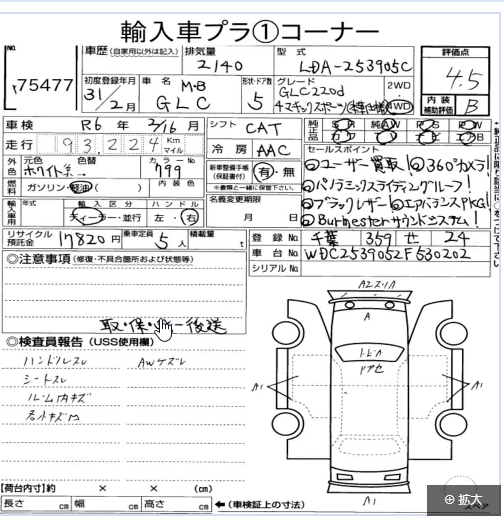 輸入車プラ①コーナー
No.
75477
車歴(自家用以外は記入)
排気量
2140
型式
LDA-253905C
評価点
4.5
初度登録年月
31/2月
車名
M・B
GLC
形状・ドア数
5
グレード
GLC220d
4マチックスポーツ(本革仕様)
2WD
4WD
内装
補助評価
B
車検
R6年2/16月
シフト
CAT
純正品
SR
AW
PS
PW
走行
93,224
Km
マイル
冷房
AAC
セールスポイント
外色
元色
ホワイト系
色替
カラーNo.
799
新車整備手帳
(保証書付)
有・無
※書類と一緒に保管下さい。
◎ユーザー買取!◎360°カメラ!
燃料
ガソリン・軽油( )
内装色
◎パノラミックスライディングルーフ!
輸入車用
年式
輸入区分
ディーラー・並行
ハンドル
左・右
名義変更期限
月 日
◎ブラックレザー
◎Burmesterサウンドシステム!
リサイクル
預託金
17820円
乗車定員
5人
積載量
t
登録No.
千葉 359 せ 24
車台No.
WDC2539052F530202
シリアルNo.
◎注意事項(修復・不具合箇所および状態等)
取・保・
後送
◎検査員報告(USS使用欄)
ハンドルスレ
AWケズレ
シートスレ
ルーム内キズ
A2
A
トビA
A1
A1
A1
【荷台内寸】約 × × (cm)
長さ cm 幅 cm 高さ cm
←(車検証上の寸法)
スペア
拡大